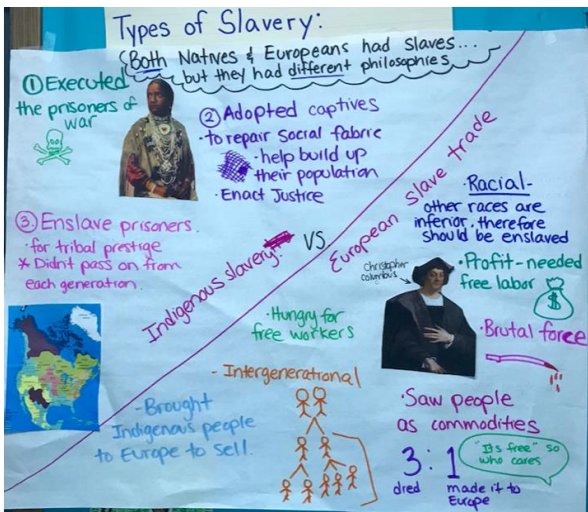 Types of Slavery:
Both Natives & Europeans had slaves...
but they had different philosophies
① Executed
the prisoners of
war
② Adopted captives
· to repair social fabric
· help build up
their population
· Enact Justice
③ Enslave prisoners
· for tribal prestige
* Didnt pass on from
each generation.
Indigenous slavery
VS.
European slave trade
· Racial-
other races are
inferior, therefore
should be enslaved
Christopher
columbus
· Profit-needed
free labor
$
· Brutal force
· Hungry for
free workers
- Intergenerational
- Brought
Indigenous people
to Europe to sell.
· Saw people
as commodities
"Its free" so
who cares
3 : 1
dred
made it to
Europe